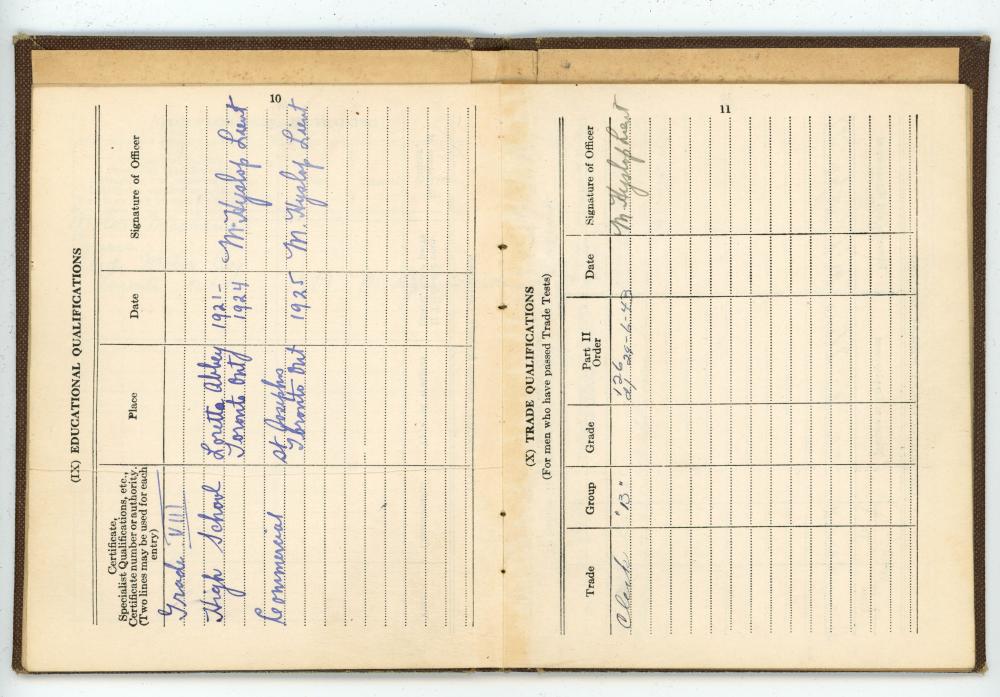 10
(IX) EDUCATIONAL QUALIFICATIONS
Certificate, Specialist Qualifications, etc., Certificate number or authority. (Two lines may be used for each entry)
Place
Date
Signature of Officer
Grade VIII
High School
Loretto Abbey
1921-
M. Hyslop Lieut
Toronto Ont
1924
Commercial
St Josephs
Toronto Ont
1925
M. Hyslop Lieut
11
(X) TRADE QUALIFICATIONS
(For men who have passed Trade Tests)
Trade
Group
Grade
Part II Order
Date
Signature of Officer
Clerk
"B"
126
M. Hyslop Lieut
d/ 29-6-43